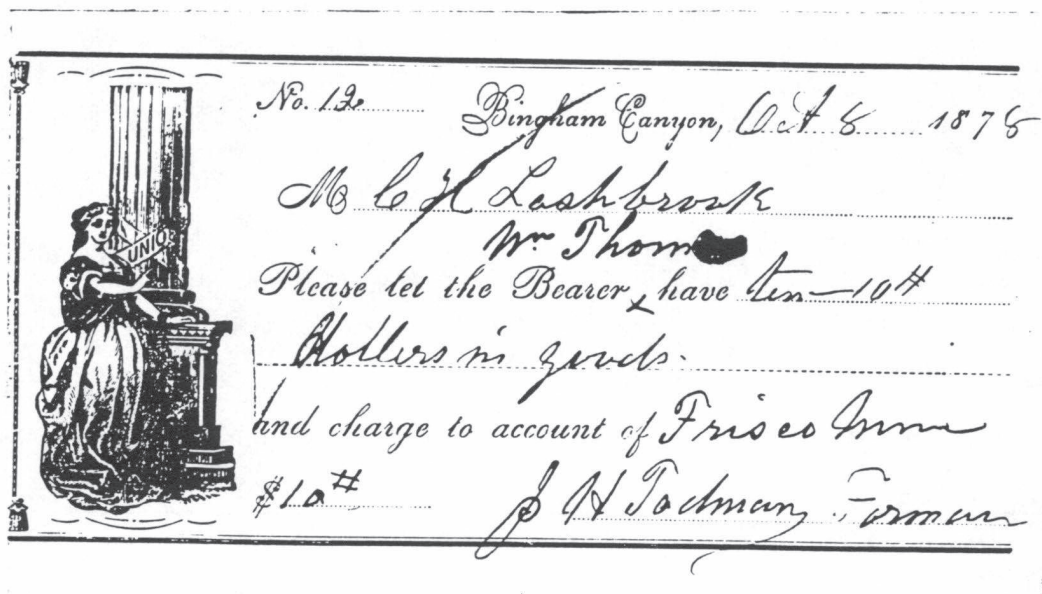 UNION
No. 12 Bingham Canyon, Oct 8 1878
Mr C H Lashbrook
Wm Thom
Please let the Bearer have ten — 10 #
Dollers in goods.
And charge to account of Frisco Mine
$10 # J H Todman Forman